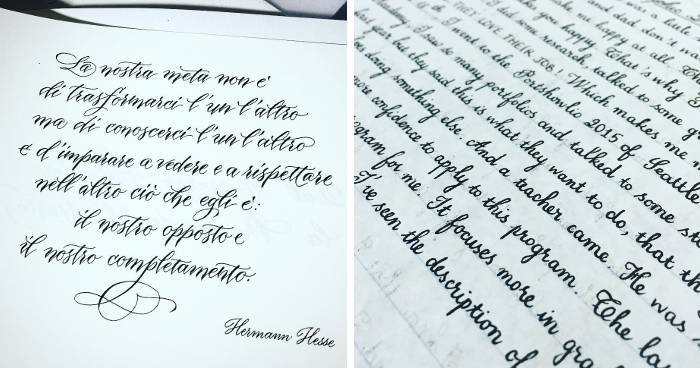 La nostra meta non e'
di trasformarci l'un l'altro
ma di conoscerci l'un l'altro
e d'imparare a vedere e a rispettare
nell'altro ciò che egli e':
il nostro opposto e
il nostro completamento.
Hermann Hesse
was a little
and dad don't
make me happy at all.
you happy. That's why I
I did some research, talked to some
THEY LOVE THEIR JOB. Which makes me
I went to the Portshowlio 2015 of Seattle
I saw so many portfolios and talked to some
but they said this is what they want to do, that
doing something else. And a teacher came. He was
more confidence to apply to this program. The
program for me. It focuses more in
I've seen the description of